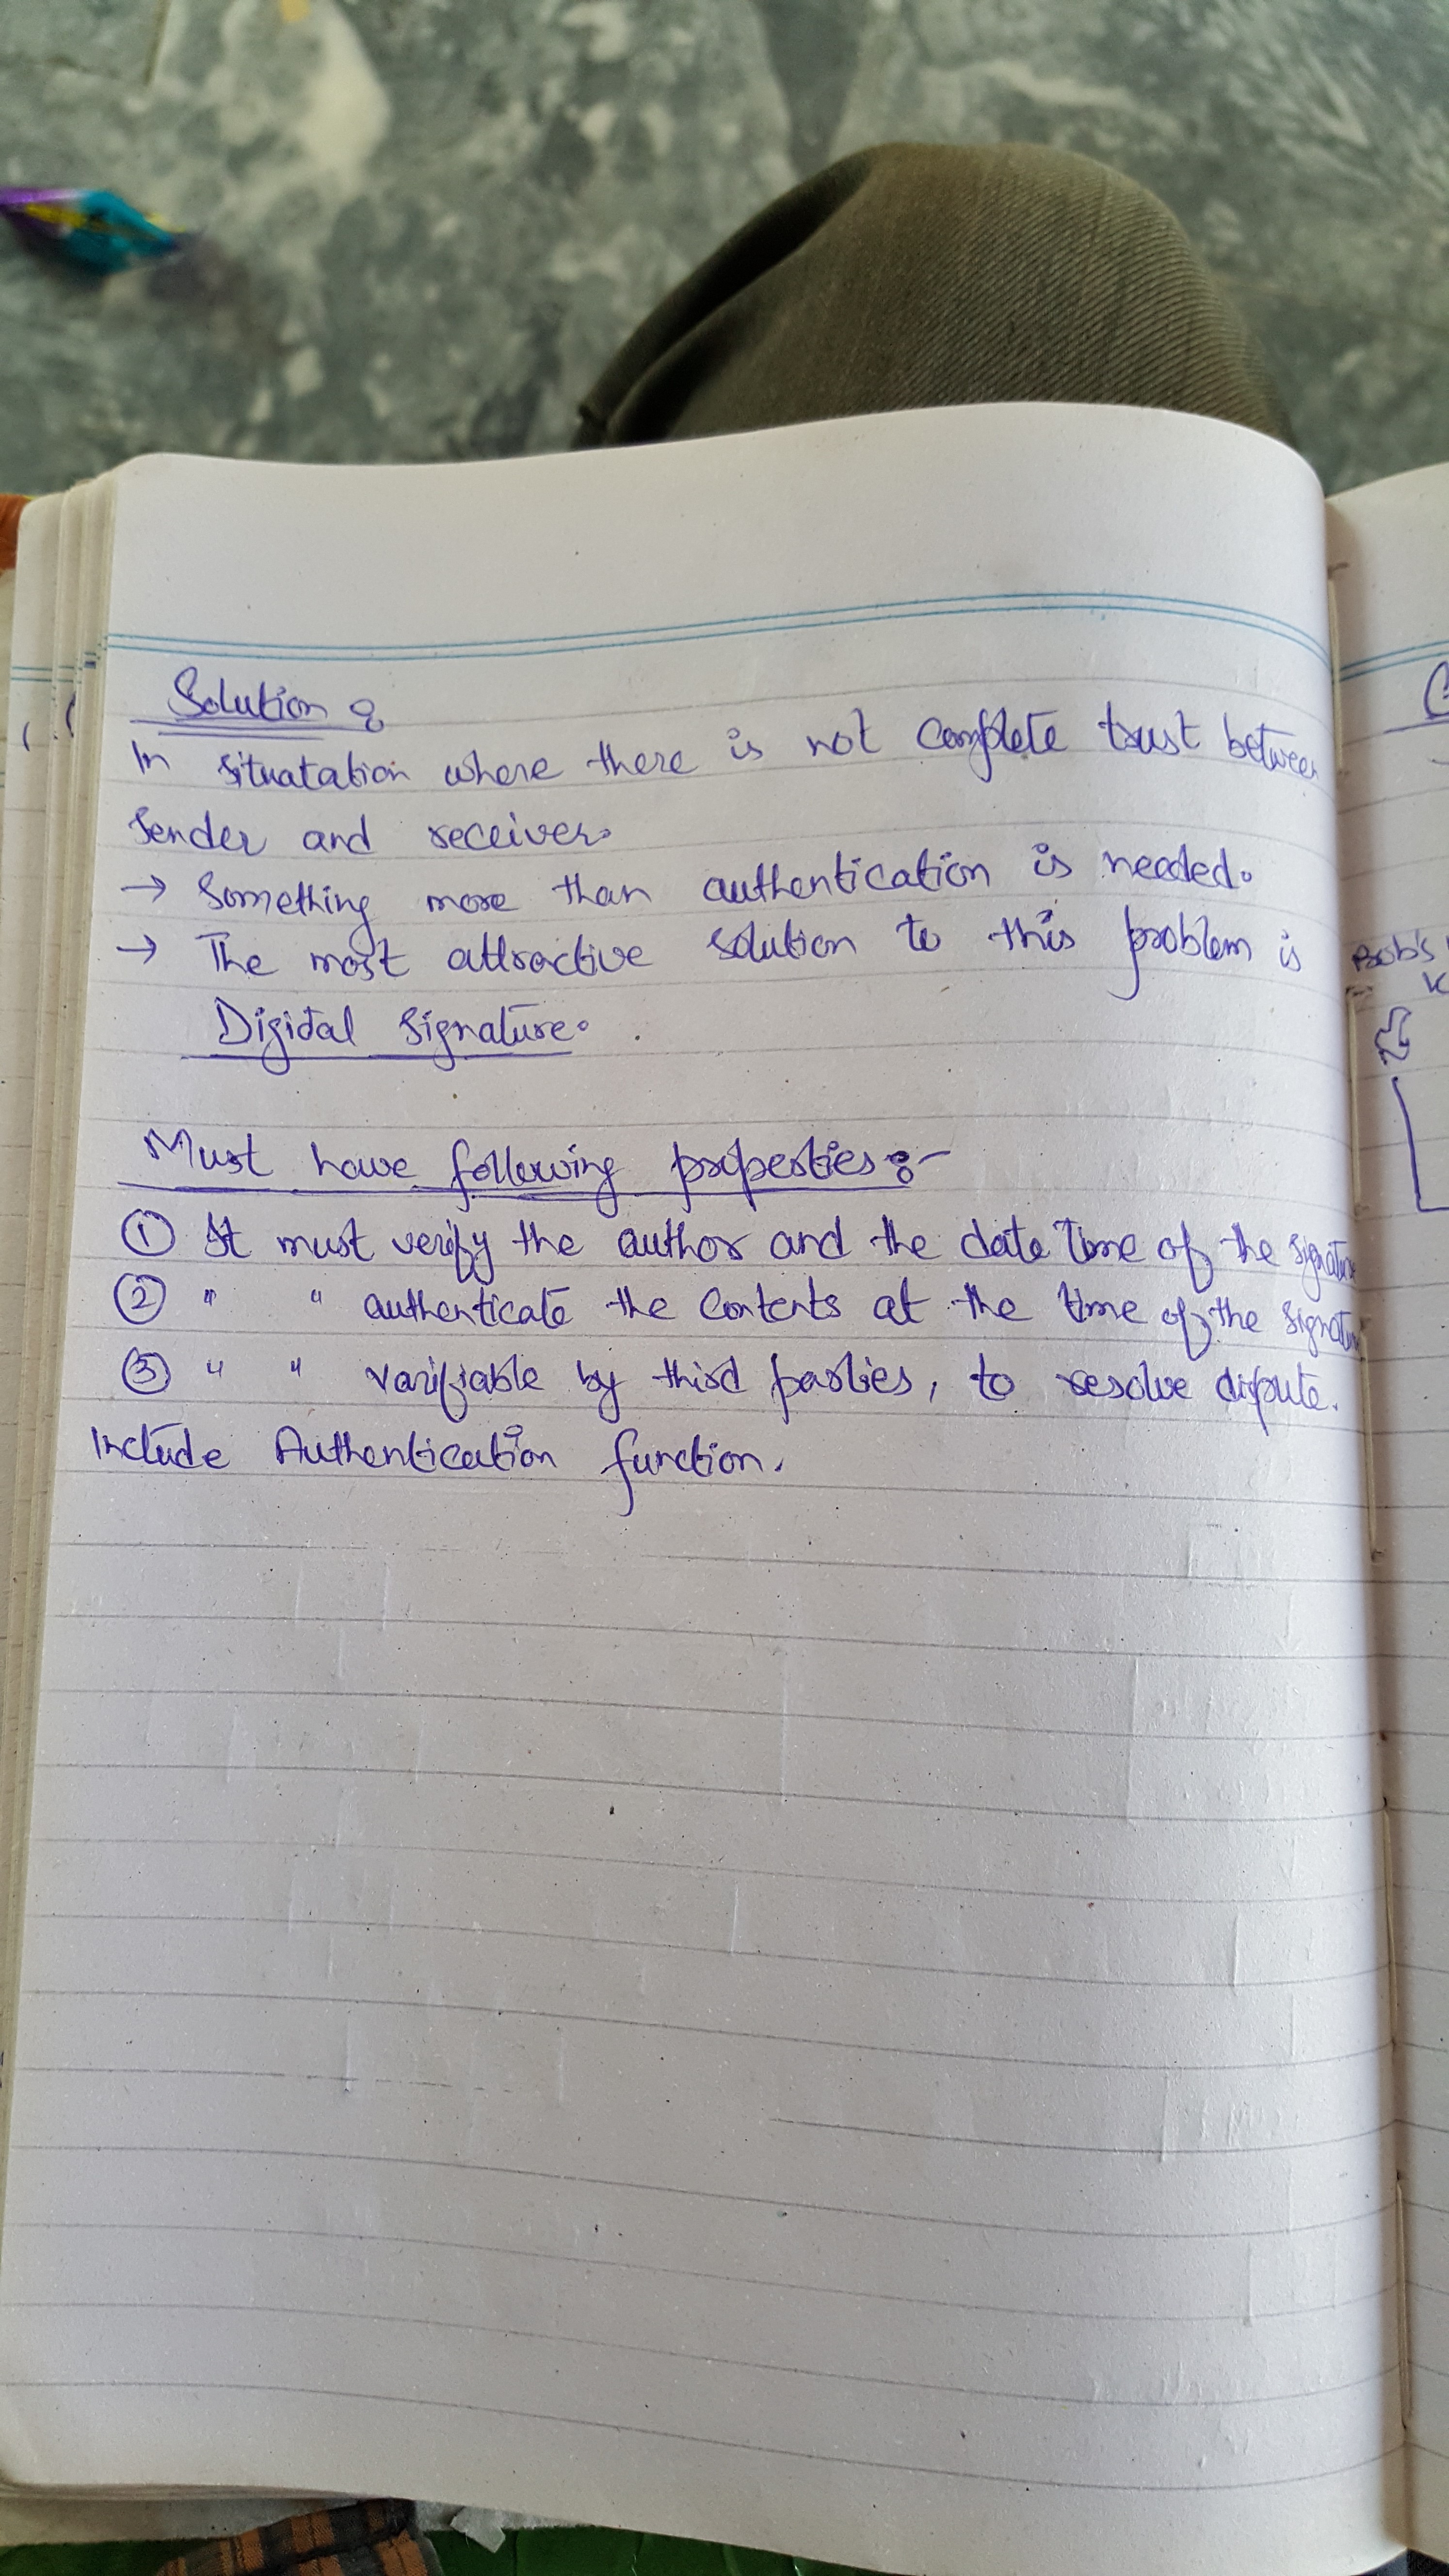 Solution :
In situatation where there is not complete trust between
Sender and receiver.
→ Something more than authentication is needed.
→ The most attractive solution to this problem is
Digidal Signature.
Must have following properties:-
① It must verify the author and the date time of the signature
② " " authenticate the Contents at the time of the signature
③ " " varifiable by third parties, to resolve dispute.
Include Authentication function.
Bob's